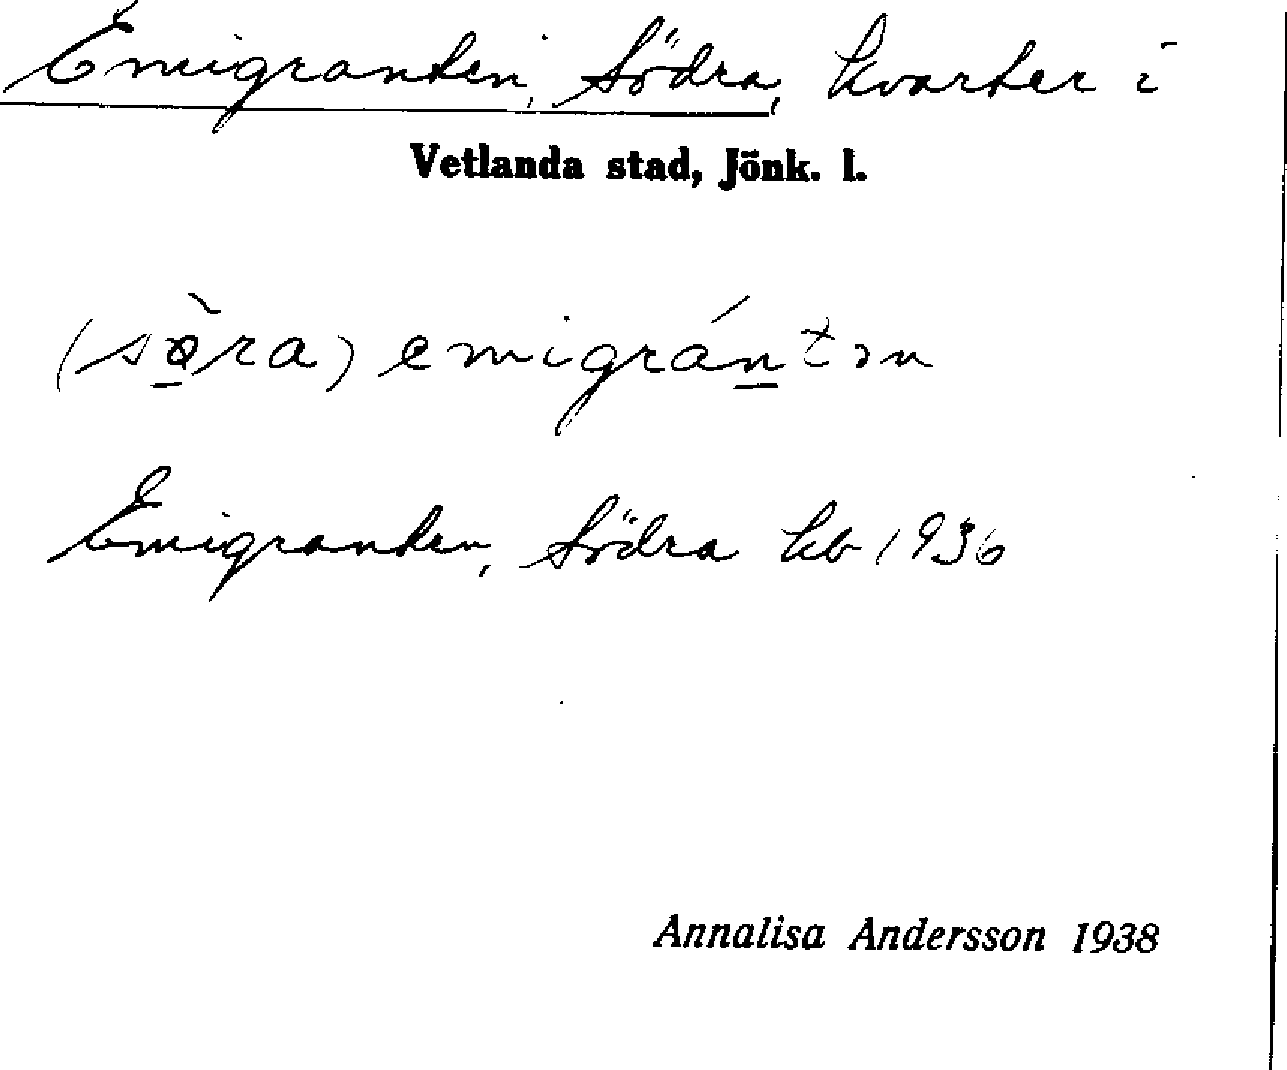 Emigranten, Södra, kvarter i
Vetlanda stad, Jönk. l.
(sø̠̀ra) emigrán̠tən
Emigranten, Södra kb 1936
Annalisa Andersson 1938